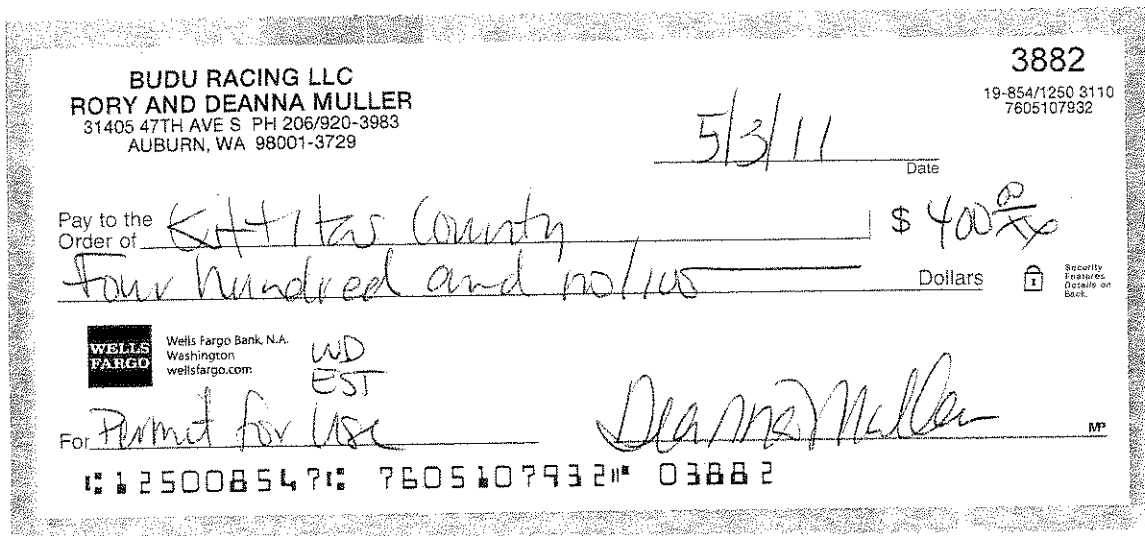 BUDU RACING LLC
RORY AND DEANNA MULLER
31405 47TH AVE S PH 206/920-3983
AUBURN, WA 98001-3729
3882
19-854/1250 3110
7605107932
5/3/11
Date
Pay to the Order of Kittitas County $ 400 00/xx
Four hundred and no/100 Dollars
Security Features Details on Back.
WELLS FARGO
Wells Fargo Bank, N.A.
Washington
wellsfargo.com
WD
EST
For Permit for Use Deanna Muller MP
⑆125008547⑆ 7605107932⑈ 03882